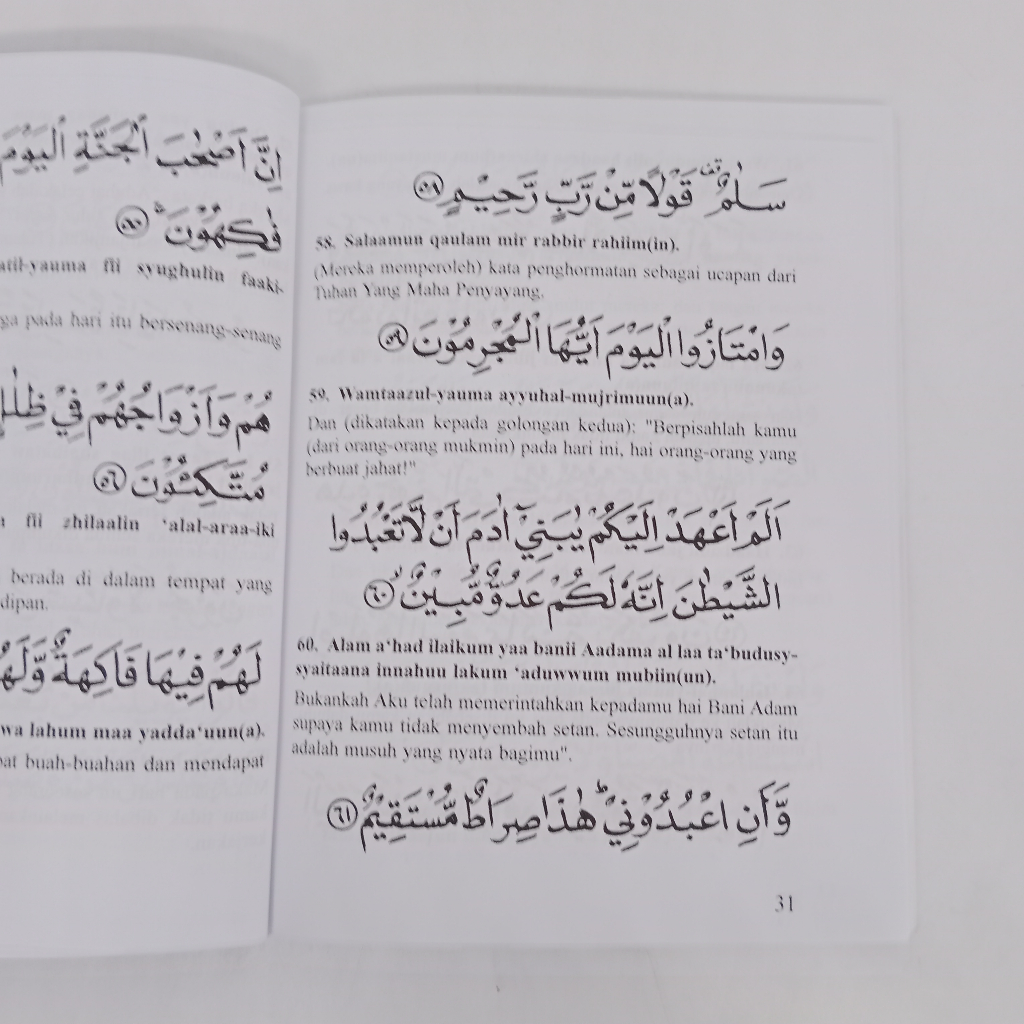 اِنَّ اَصْحٰبَ الْجَنَّةِ الْيَوْمَ
فٰكِهُوْنَ ۚ ﴿٥٥﴾
atil-yauma fii syughulin faaki-
ga pada hari itu bersenang-senang
هُمْ وَاَزْوَاجُهُمْ فِيْ ظِلٰلٍ
مُتَّكِـُٔوْنَ ﴿٥٦﴾
fii zhilaalin ‘alal-araa-iki
berada di dalam tempat yang
dipan.
لَهُمْ فِيْهَا فَاكِهَةٌ وَّلَهُمْ
wa lahum maa yadda‘uun(a).
pat buah-buahan dan mendapat
سَلٰمٌ ۗ قَوْلًا مِّنْ رَّبٍّ رَّحِيْمٍ ﴿٥٨﴾
58. Salaamun qaulam mir rabbir rahiim(in).
(Mereka memperoleh) kata penghormatan sebagai ucapan dari
Tuhan Yang Maha Penyayang.
وَامْتَازُوا الْيَوْمَ اَيُّهَا الْمُجْرِمُوْنَ ﴿٥٩﴾
59. Wamtaazul-yauma ayyuhal-mujrimuun(a).
Dan (dikatakan kepada golongan kedua): "Berpisahlah kamu
(dari orang-orang mukmin) pada hari ini, hai orang-orang yang
berbuat jahat!"
اَلَمْ اَعْهَدْ اِلَيْكُمْ يٰبَنِيْٓ اٰدَمَ اَنْ لَّا تَعْبُدُوا
الشَّيْطٰنَ اِنَّهٗ لَكُمْ عَدُوٌّ مُّبِيْنٌ ۙ ﴿٦٠﴾
60. Alam a‘had ilaikum yaa banii Aadama al laa ta‘budusy-
syaitaana innahuu lakum ‘aduwwum mubiin(un).
Bukankah Aku telah memerintahkan kepadamu hai Bani Adam
supaya kamu tidak menyembah setan. Sesungguhnya setan itu
adalah musuh yang nyata bagimu".
وَّاَنِ اعْبُدُوْنِيْ ۗ هٰذَا صِرَاطٌ مُّسْتَقِيْمٌ ﴿٦١﴾
31